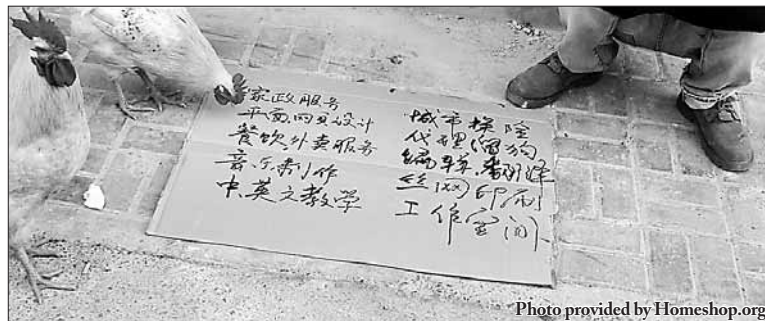 家政服务
平面,网页设计
餐饮外卖服务
音乐制作
中英文教学
城市探险
代理溜狗
编辑,翻译
丝网印刷
工作空间
Photo provided by Homeshop.org